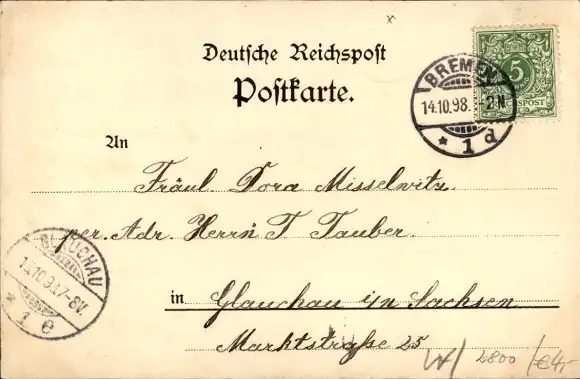 Deutsche Reichspost
Postkarte.
5
REICHSPOST
BREMEN
14.10.98. -2N
* 1 d
An
Fräul. Dora Misselwitz.
per. Adr. Herrn T Tauber.
GLAUCHAU
7-8V.
* 1 e
in Glauchau in Sachsen
Marktstraße 25
2800 /€4,-